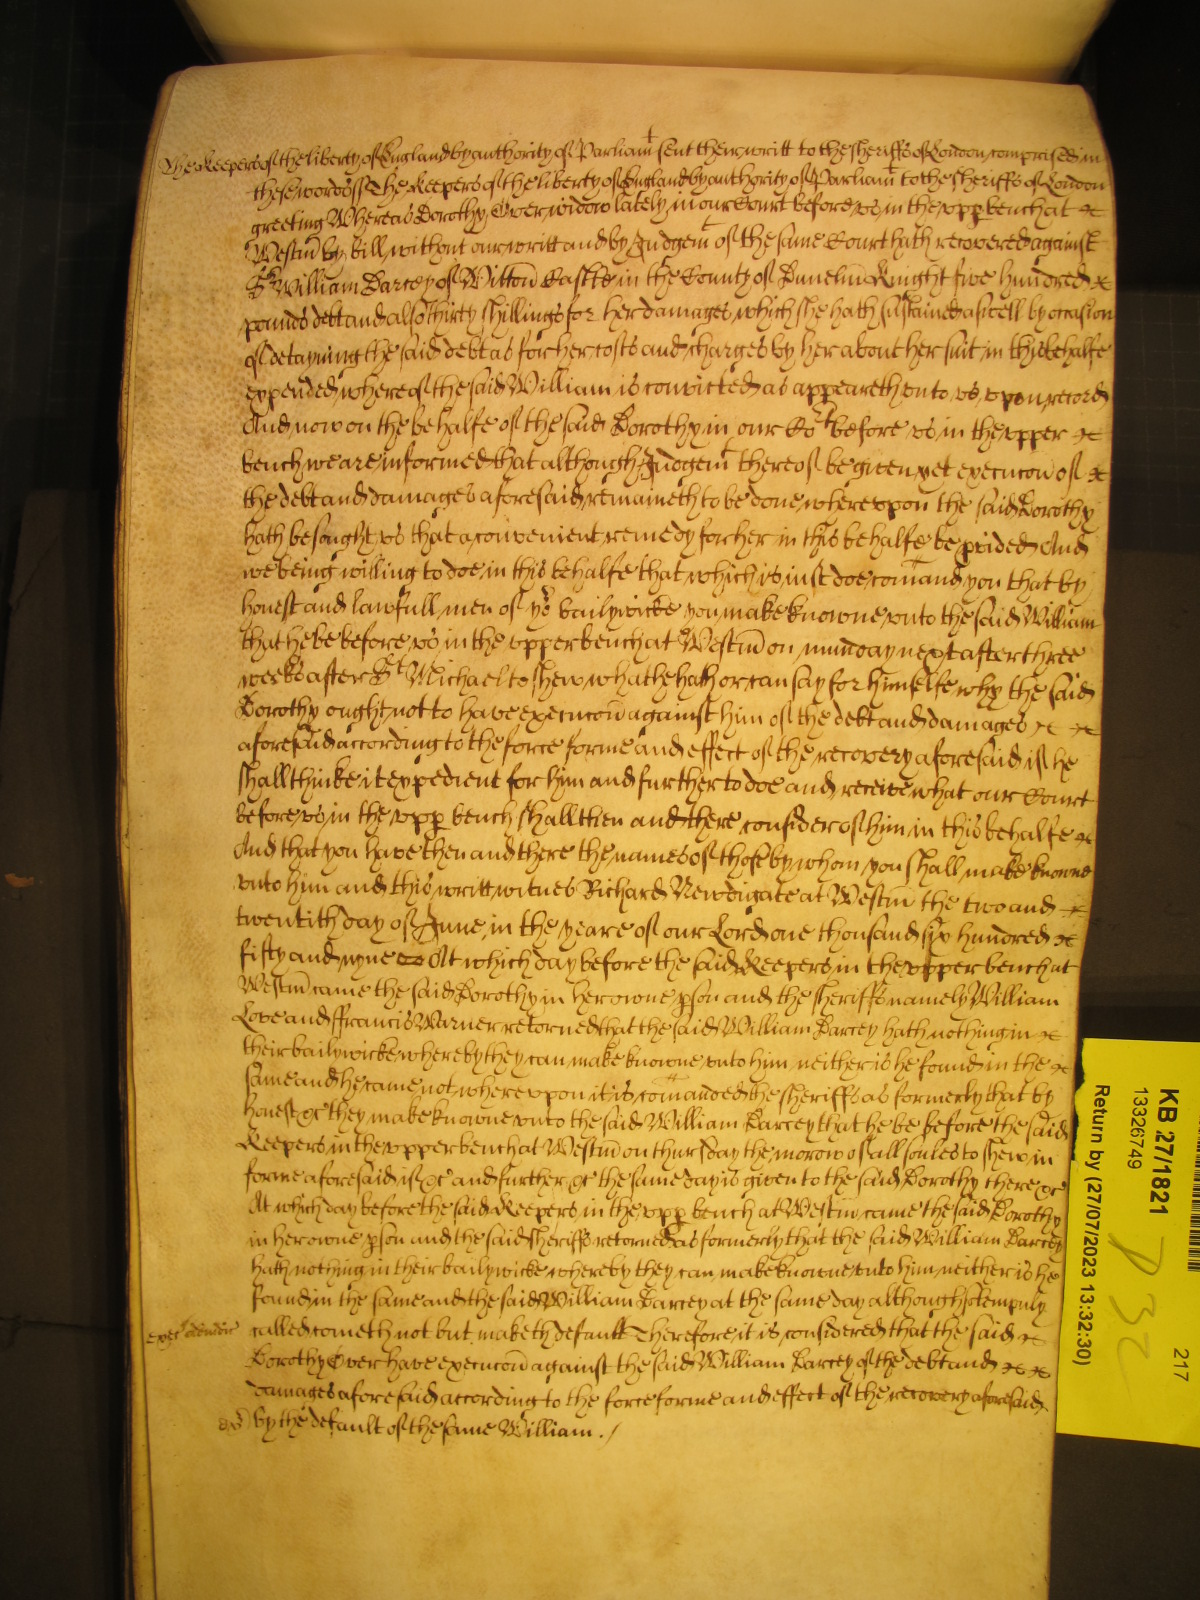 The Keepers of the liberty of England by authority of Parliam̃t sent their writt to the sheriffs of London comprised in
these words ss The Keepers of the liberty of England by authority of Parliam̃t to the sheriffs of London
greeting Whereas Dorothy Over widow lately in our Court before vs in the vpp bench at
Westm̃ by bill without our writt and by Judgem̃t of the same Court hath recovered against
Sr William Darcey of Witton Castle in the County of Dunelm̃ Knight five hundred
pounds debt and also thirty shillings for her damages which she hath sustained aswell by occasion
of detayning the said debt as for her costs and charges by her about her suit in this behalfe
expended whereof the said William is convicted as appeareth vnto vs vpon record
And now on the behalfe of the said Dorothy in our Cort before vs in the vpper
bench we are informed that although Judgem̃t thereof be given yet execucoñ of
the debt and damages aforesaid remaineth to be done wherevpon the said Dorothy
hath besought vs that a convenient remedy for her in this behalfe be pvided And
we being willing to doe in this behalfe that which is iust doe com̃and you that by
honest and lawfull men of yor bailywicke you make knowne vnto the said William
that he be before vs in the vpper bench at Westm̃ on munday next after three
weeks after St Michael to shew what he hath or can say for himselfe why the said
Dorothy ought not to have execucoñ against him of the debt and damages
aforesaid according to the force forme and effect of the recovery aforesaid if he
shall thinke it expedient for him and further to doe and receive what our Court
before vs in the vpp bench shall then and there consider of him in this behalfe
And that you have then and there the names of those by whom you shall make knowne
vnto him and this writt witnes Richard Newdigate at Westm̃ the two and
twentith day of June in the yeare of our Lord one thousand six hundred
fifty and nyne At which day before the said Keepers in the vpper bench at
Westm̃ came the said Dorothy in her owne pson and the sheriffs namely William
Love and ffrancis Warner retorned that the said William Darcey hath nothing in
their bailywicke whereby they can make knowne vnto him neither is he found in the
same and he came not wherevpon it is com̃anded the sheriffs as formerly that by
honest &c they make knowne vnto the said William Darcey that he be before the said
Keepers in the vpper bench at Westm̃ on thursday the morow of all soules to shew in
forme aforesaid if &c and further &c the same day is given to the said Dorothy there &c
At which day before the said Keepers in the vpp bench at Westm̃ came the said Dorothy
in her owne pson and the said sheriffs retorned as formerly that the said William Darcey
hath nothing in their bailywicke whereby they can make knowne vnto him neither is he
found in the same and the said William Darcey at the same day although solempnly
called cometh not but maketh default Therefore it is considered that the said
Dorothy Over have execucoñ against the said William Darcey of the debt and
damages aforesaid according to the force forme and effect of the recovery aforesaid
by the default of the same William ./
KB 27/1821
13326749
Return by (27/07/2023 13:32:30)
217